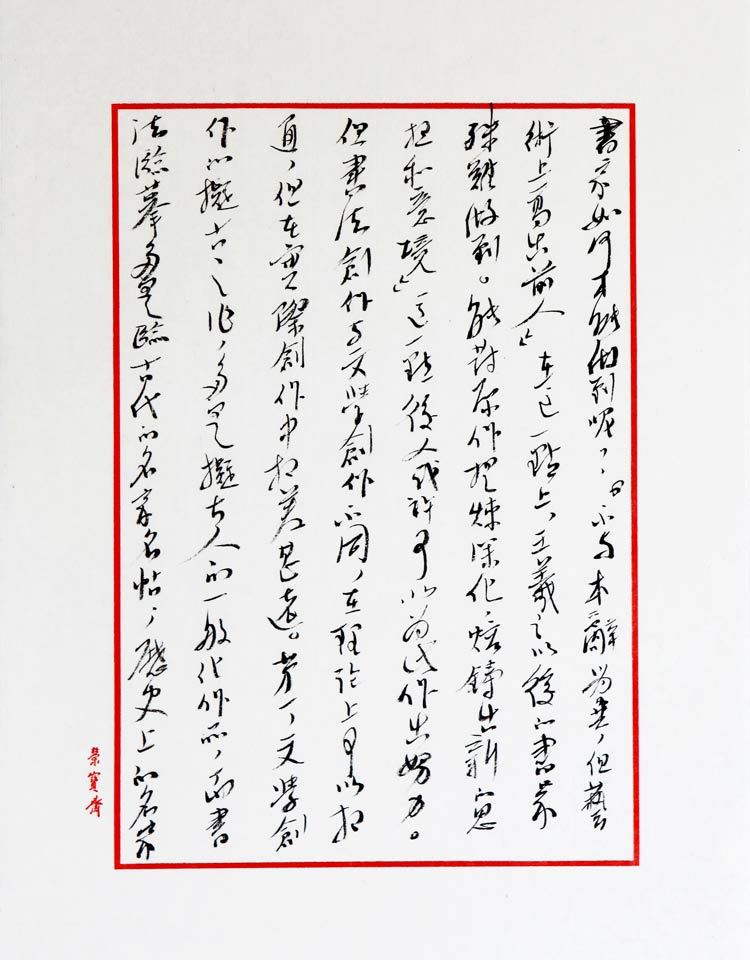 書家如何才能做到呢，“不與本辭為異，但藝
術上高出前人”在這一點上，王羲之以後的書家
殊難做到。能對原作提煉深化，熔鑄出新思
想和意境”這一點後人或許可以為此作出努力。
但書法創作与文學創作不同，在理論上可以相
通，但在實際創作中相差甚遠。第一文學創
作的擬古之作，多是擬古人的一般作品，而書
法臨摹多是臨古代的名家名帖，歷史上的名
榮寶齋